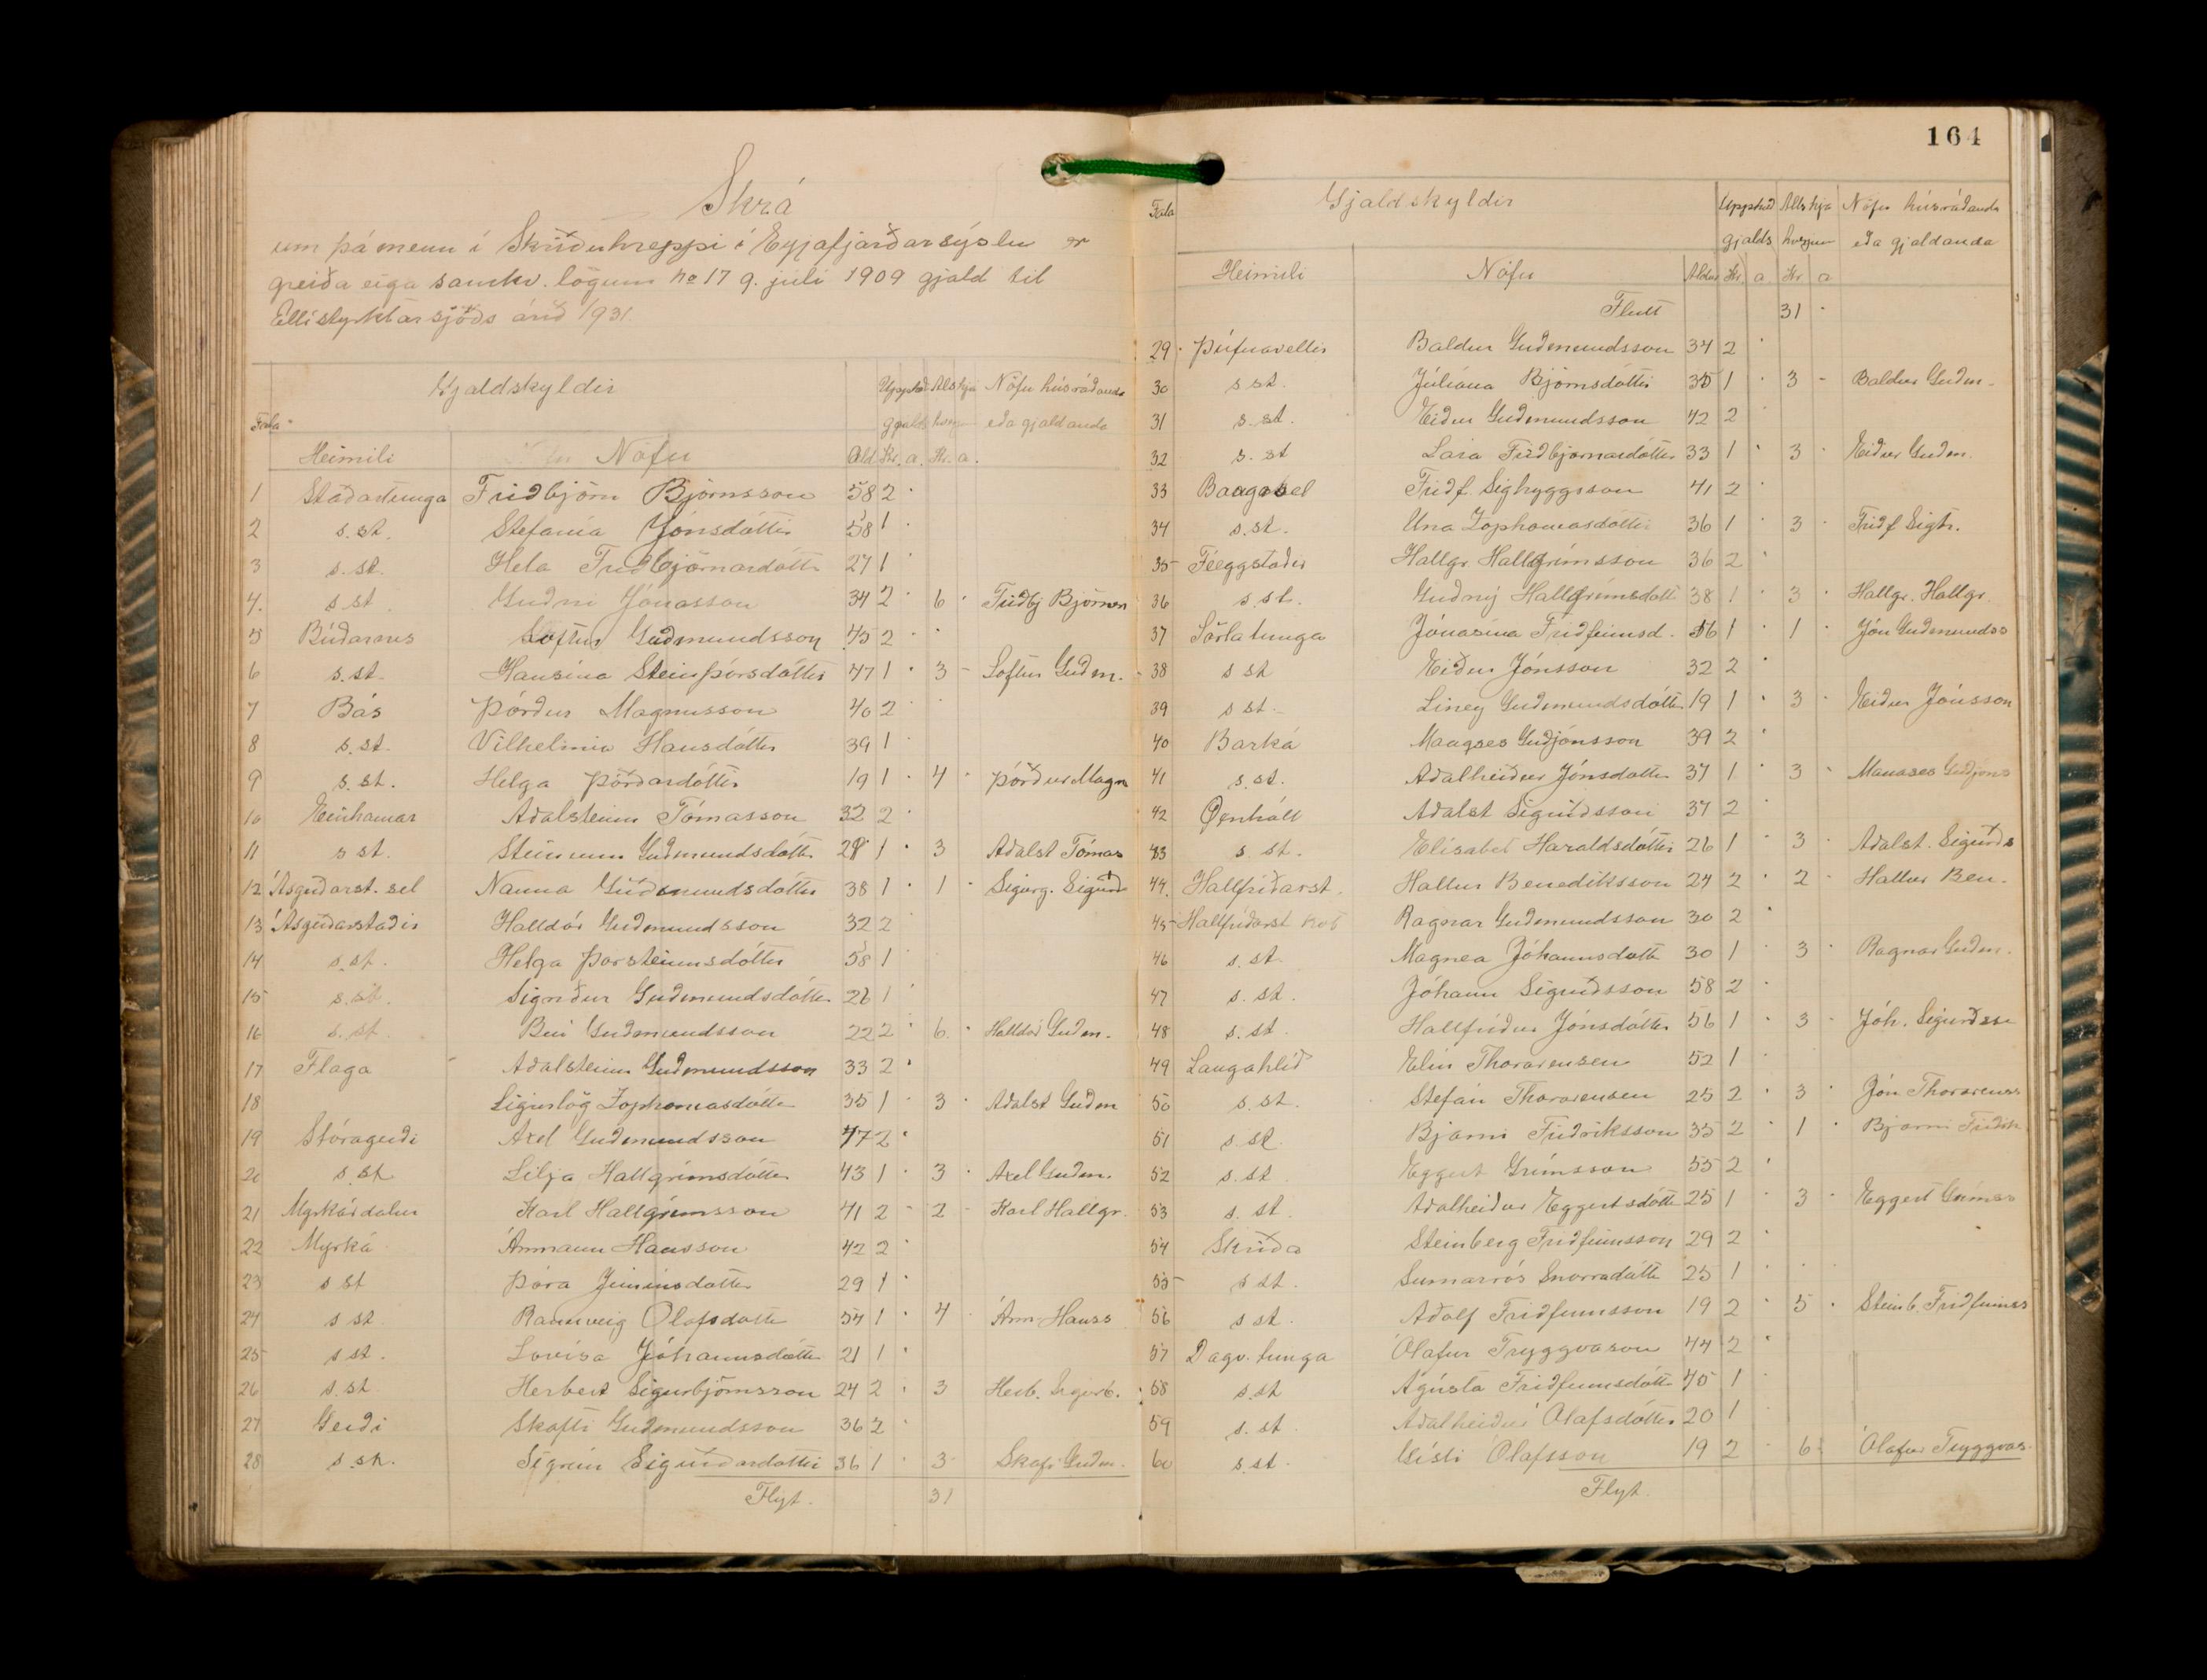 Skrá
um þá menn í Skriðuhreppi í Eyjafjarðarsýslu er
greiða eiga samkv. lögum no 17 9. júli 1909 gjald til
Ellistyrktarsjóðs árið 1931.
Tala Gjaldskyldir Upphæð gjalds Alls hjá hverjum Nöfn húsráðanda eða gjaldanda
Heimili Nöfn Ald Kr. a. Kr. a.
1 Staðartunga Friðbjörn Björnsson 58 2 ·
2 s. st. Stefanía Jónsdóttir 58 1 ·
3 s. st. Hela Friðbjörnardóttir 27 1
4. s st Guðni Jónasson 34 2 · 6 · Friðbj Björnsn
5 Búðarnes Loftur Guðmundsson 45 2 · ·
6 s. st Hansína Steinþórsdóttir 47 1 · 3 - Loftur Guðm.
7 Bás Þórður Magnusson 40 2 ·
8 s. st. Vilhelmína Hansdóttir 39 1 ·
9 s. st. Helga Þórðardóttir 19 1 · 4 · Þórður Magn
10 Einhamar Aðalsteinn Tómasson 32 2 ·
11 s st. Steinunn Guðmundsdóttir 28 1 · 3 Aðalst Tómas
12 Ásgerðarst. sel Nanna Guðmundsdóttir 38 1 · 1 · Sigurg. Sigurð
13 Ásgerðarstaðir Halldór Guðmundsson 32 2
14 s. st. Helga Þorsteinsdóttir 58 1
15 s. st. Sigríður Guðmundsdóttir 26 1
16 s. st. Beni Guðmundsson 22 2 · 6 · Halldór Guðm.
17 Flaga Aðalsteinn Guðmundsson 33 2 ·
18 Sigurlög Zophoniasdóttir 35 1 · 3 · Aðalst Guðm
19 Stóragerði Axel Guðmundsson 47 2 ·
20 s. st Lilja Hallgrímsdóttir 43 1 · 3 · Axel Guðm.
21 Myrkárdalur Karl Hallgrímsson 41 2 - 2 - Karl Hallgr.
22 Myrká Ármann Hansson 42 2 ·
23 s st Þóra Júníusdóttir 29 1 ·
24 s st Rannveig Ólafsdóttir 54 1 · 4 · Árm Hanss
25 s st. Lovísa Jóhannsdóttir 21 1 ·
26 s. st Herbert Sigurbjörnsson 24 2 · 3 Herb. Sigurb.
27 Gerði Skafti Guðmundsson 36 2 ·
28 s. st. Sigrún Sigurðardóttir 36 1 · 3 Skafti Guðm.
Flyt. 31
164
Tala Gjaldskyldir Upphæð gjalds Alls hjá hverjum Nöfn húsráðanda eða gjaldanda
Heimili Nöfn Aldur Kr. a. Kr a
Flutt 31 ·
29 · Þúfnavellir Baldur Guðmundsson 34 2 ·
30 s st. Júlíana Björnsdóttir 35 1 · 3 - Baldur Guðm-
31 s. st. Eiður Guðmundsson 42 2 ·
32 s. st Lára Friðbjörnardóttir 33 1 · 3 · Eiður Guðm.
33 Baugasel Friðf. Sigtryggsson 41 2
34 s. st. Una Zophoniasdóttir 36 1 · 3 · Friðf Sigtr.
35 Féeggstaðir Hallgr Hallgrímsson 36 2 ·
36 s. st. Guðný Hallgrímsdótt 38 1 · 3 · Hallgr. Hallgr.
37 Sörlatunga Jónasína Friðfinnsd. 56 1 · 1 · Jón Guðmundss
38 s st Eiður Jónsson 32 2 ·
39 s st. Líney Guðmundsdóttir 19 1 · 3 · Eiður Jónsson
40 Barká Manases Guðjónsson 39 2 ·
41 s. st. Aðalheiður Jónsdóttir 37 1 · 3 · Manases Guðjóns
42 Öxnhóll Aðalst Sigurðsson 37 2 ·
43 s. st. Elísabet Haraldsdóttir 26 1 · 3 · Aðalst. Sigurðs
44. Hallfríðarst. Hallur Benediktsson 24 2 · 2 · Hallur Ben.
45 Hallfríðarst kot Ragnar Guðmundsson 30 2 ·
46 s. st. Magnea Jóhannsdóttir 30 1 · 3 · Ragnar Guðm.
47 s. st. Jóhann Sigurðsson 58 2 ·
48 s. st. Hallfríður Jónsdóttir 56 1 · 3 · Jóh. Sigurðsson
49 Laugahlíð Elín Thorarensen 52 1 ·
50 s. st. Stefán Thorarensen 25 2 · 3 · Jón Thorarenss
51 s. st. Bjarni Friðriksson 35 2 · 1 · Bjarni Friðrik
52 s. st Eggert Grímsson 55 2 ·
53 s. st. Aðalheiður Eggertsdóttir 25 1 · 3 · Eggert Grímss
54 Skriða Steinberg Friðfinnsson 29 2 ·
55 s st. Sumarrós Snorradóttir 25 1 · ·
56 s st. Aðolf Friðfinnsson 19 2 · 5 · Steinb. Friðfinnss
57 Dagv. tunga Ólafur Tryggvason 44 2 ·
58 s. st Ágústa Friðfinnsdóttir 45 1 ·
59 s. st Aðalheiður Ólafsdóttir 20 1
60 s. st. Gísli Ólafsson 19 2 · 6 · Ólafur Tryggvas.
Flyt.